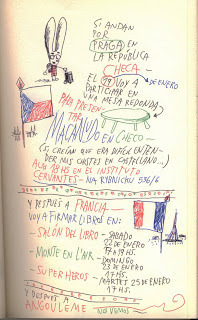 SI ANDAN
POR
PRAGA EN
LA REPÚBLICA
CHECA -
EL 19 VOY A
DE ENERO
PARTICIPAR EN
UNA MESA REDONDA
PARA PRESEN-
TAR
MACANUDO EN CHECO -
(SI CREÍAN QUE ERA DIFÍCIL ENTEN-
DER MIS CHISTES EN CASTELLANO...)
A LAS 18 HS EN EL INSTITUTO
CERVANTES - NA RIBNICKU 536/6
Y DESPUÉS A FRANCIA
VOY A FIRMAR LIBROS EN:
- SALÓN DEL LIBRO - SABADO
22 DE ENERO
17 A 19 HS.
- MONTE EN L'AIR - DOMINGO
23 DE ENERO
17 HS -
- SUPER HEROS - MARTES 25 DE ENERO
17 HS.
Y DESPUÉS A
ANGOULÊME
NOS VEMOS